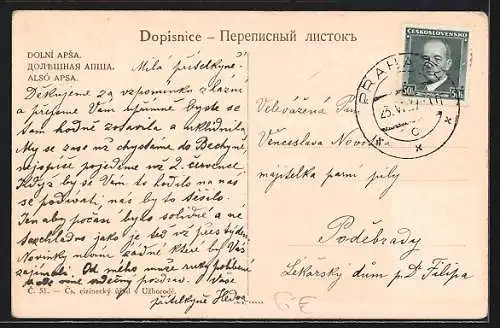 Dopisnice – Переписный листокъ
DOLNÍ APŠA.
ДОЛѢШНАЯ АПША.
ALSÓ APSA.
Milá přítelkyně.
Děkujeme za vzpomínku z lázní
a přejeme Vám upřímně byste se
tam hodně zotavila a uklidnila.
My se zase už chystáme do Bechyně,
nejspíše pojedeme už 2. července
Když by se Vám to hodilo na nás
se podívati, nás by to těšilo.
Jen aby počasí bylo solidné a né
tak chladno jako je teď
Novinky nevím žádné které by Vás
zajímali. Od mého muže ruky políbení
a ode mne srdečný pozdrav. Vaše
přítelkyně
Č. 51. – Čs. cizinecký úřad v Užhorodě.
ČESKOSLOVENSKO
50 h
PRAHA
Velevážená Paní
Věnceslava Novotná
majitelka parní pily
Poděbrady
Lékařský dům p. Dr Filipa